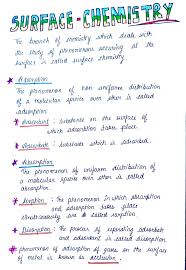 SURFACE-CHEMISTRY
The branch of chemistry which deals with
the study of phenomenon occuring at the
surface is called surface chemistry.
Adsorption
The phenomenon of non uniform distribution
of a molecular species over them is called
adsorption.
Adsorbent : substance on the surface of
which adsorption takes place.
Adsorbate : substance which is adsorbed.
Absorption
The phenomenon of uniform distribution of
a molecular species over them is called
absorption.
Sorption : The phenomenon in which absorption
and adsorption takes place
simultaneously are called sorption.
Desorption : The process of separating adsorbate
and adsorbent is called desorption.
phenomenon of adsorption of gases on the surface
of metal is known as occlusion.